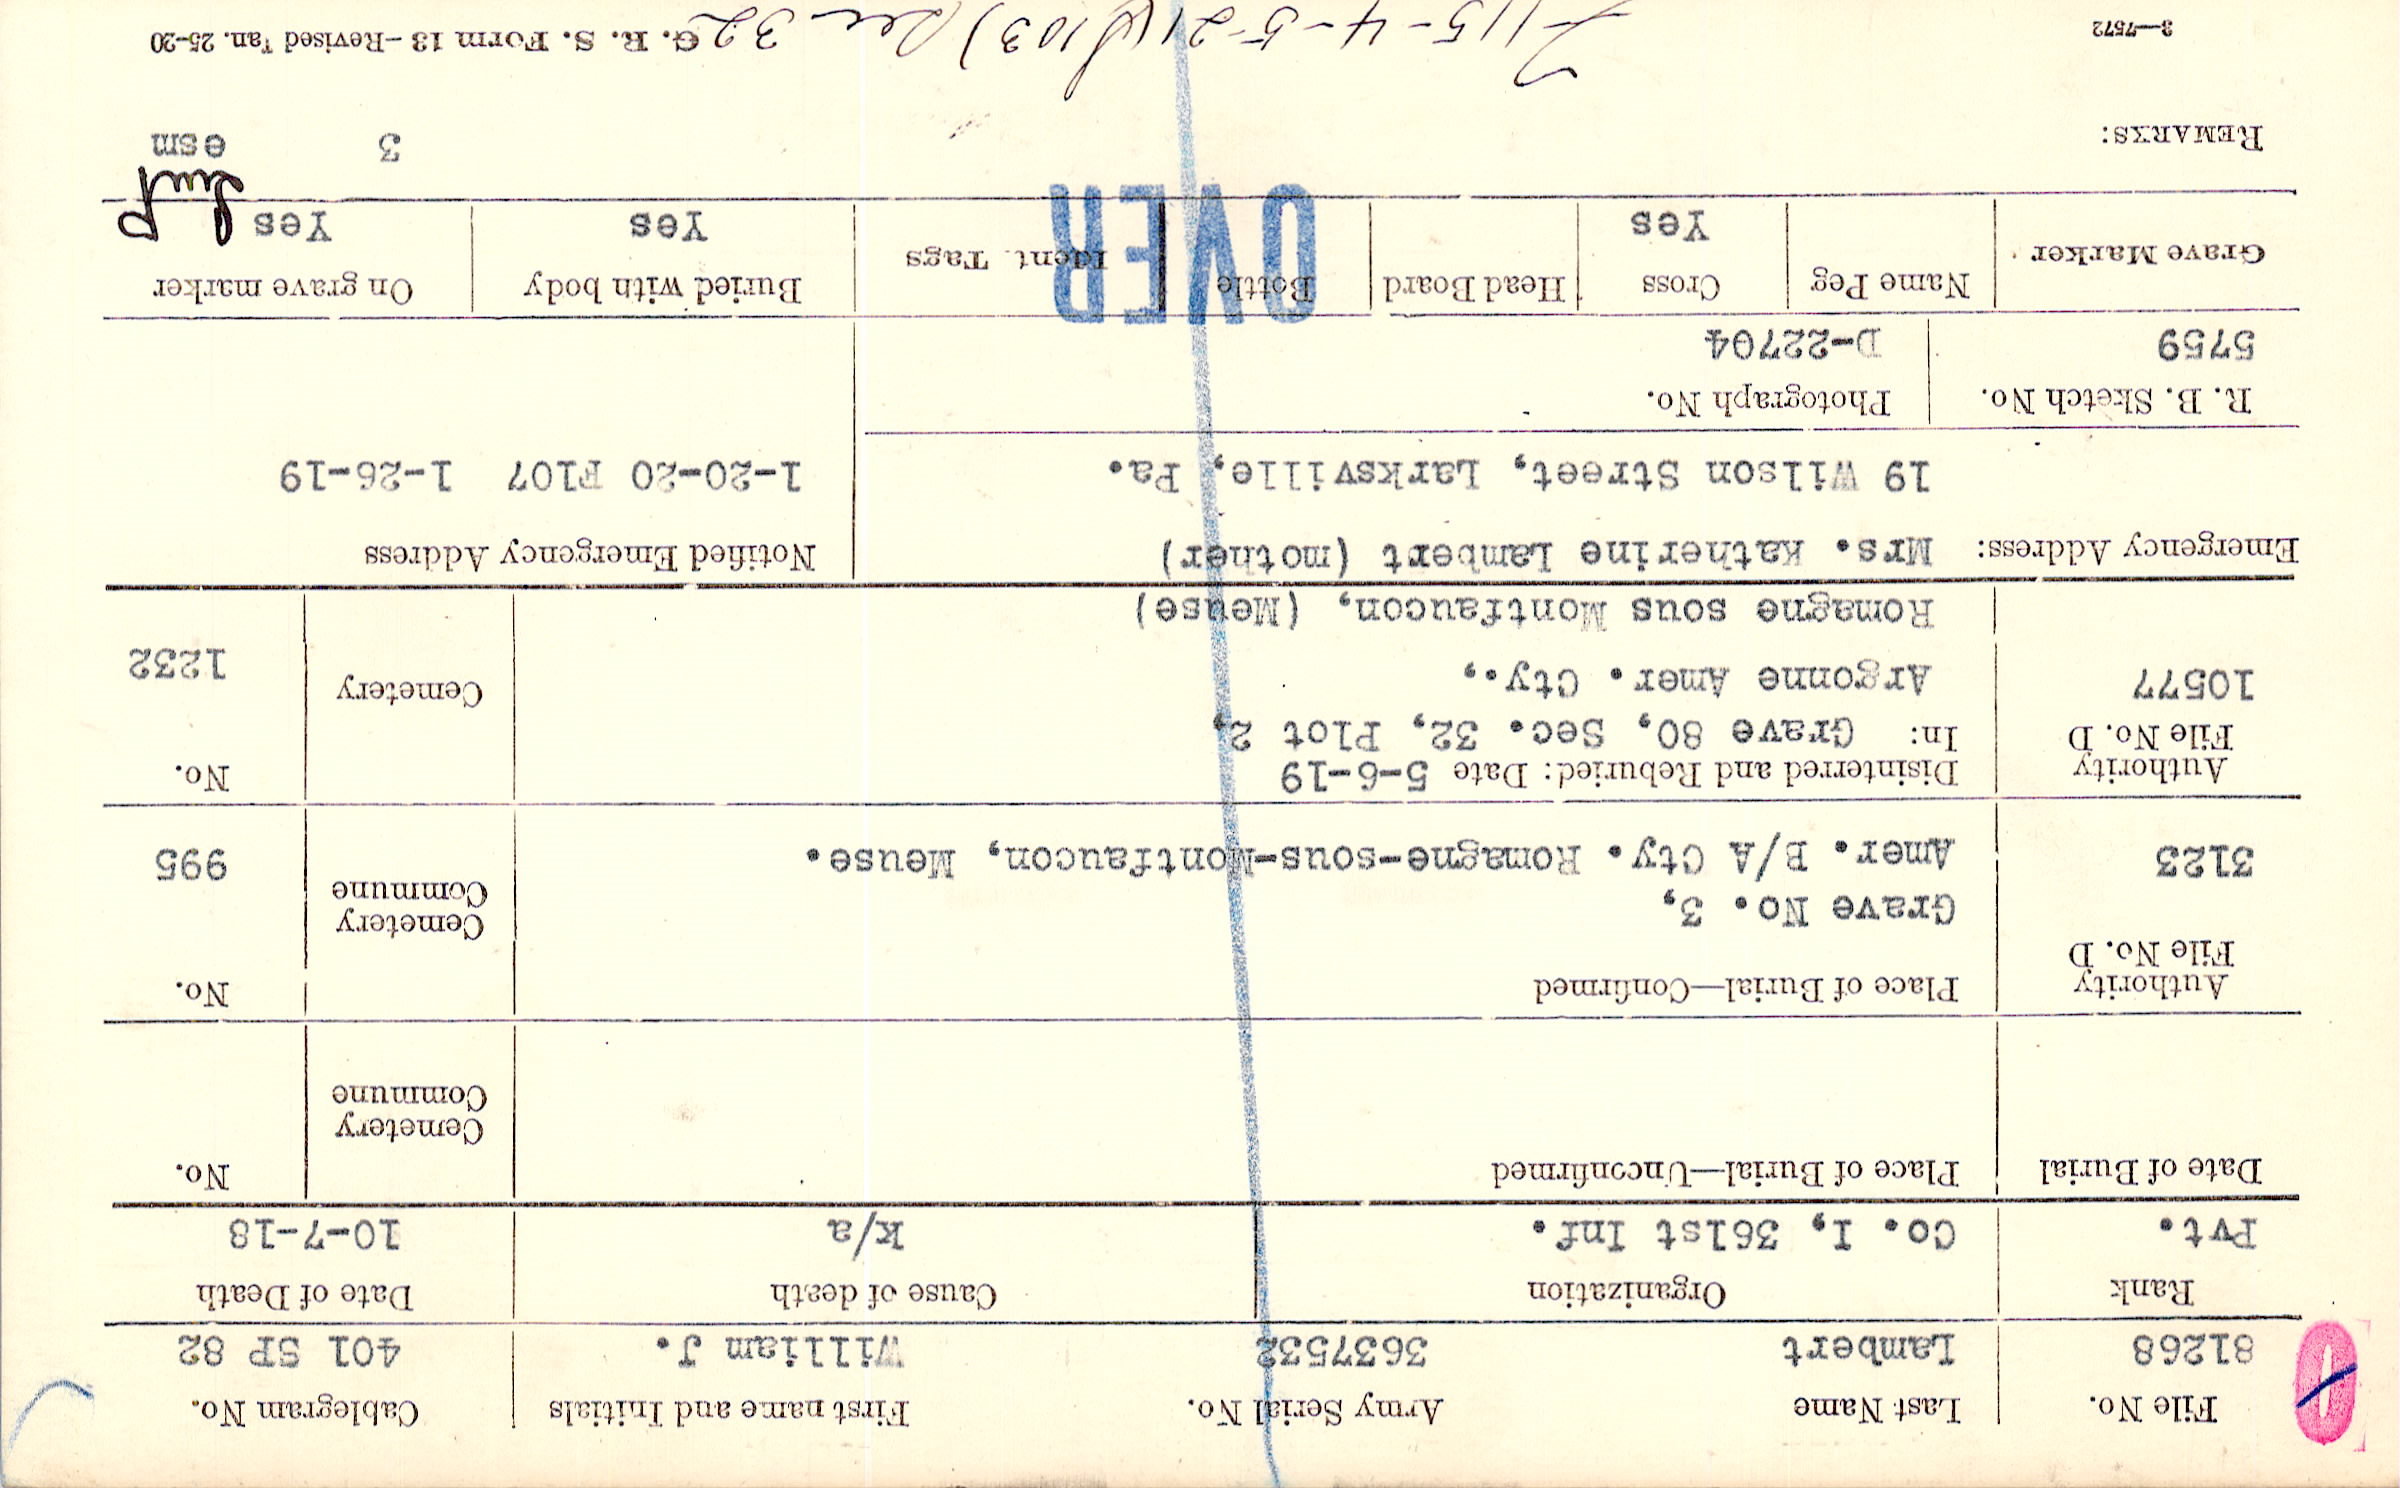 File No. Last Name Army Serial No. First name and Initials Cablegram No.
81268 Lambert 3637532 William J. 401 SP 82
Rank Organization Cause of death Date of Death
Pvt. Co. I, 361st Inf. K/a 10-7-18
Date of Burial Place of Burial—Unconfirmed No.
Cemetery
Commune
Authority Place of Burial—Confirmed No.
File No. D
Grave No. 3, Cemetery
3123 Amer. B/A Cty. Romagne-sous-Montfaucon, Meuse. Commune 995
Authority Disinterred and Reburied: Date 5-6-19 No.
File No. D In: Grave 80, Sec. 32, Plot 2,
10577 Argonne Amer. Cty., Cemetery 1232
Romagne sous Montfaucon, (Meuse)
Emergency Address: Mrs. Katherine Lambert (mother) Notified Emergency Address
19 Wilson Street, Larksville, Pa. 1-20-20 F107 1-26-19
R. B. Sketch No. Photograph No.
5759 D-22704
Grave Marker Name Peg Cross Head Board Bottle Ident. Tags Buried with body On grave marker
Yes Yes Yes
OVER
REMARKS: 3 esm
3—7572 G. R. S. Form 13—Revised Jan. 25-20